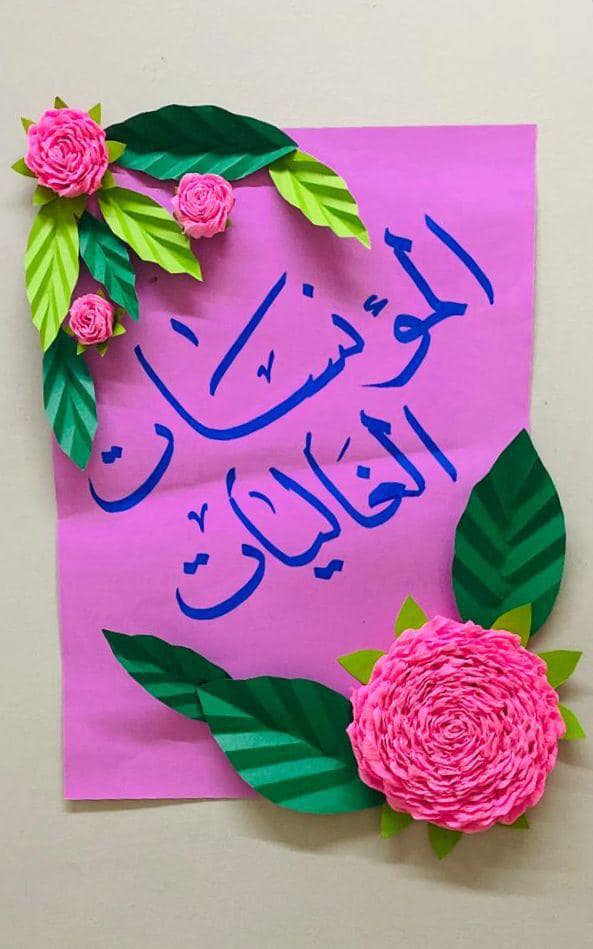 المؤنسات
الغَاليات